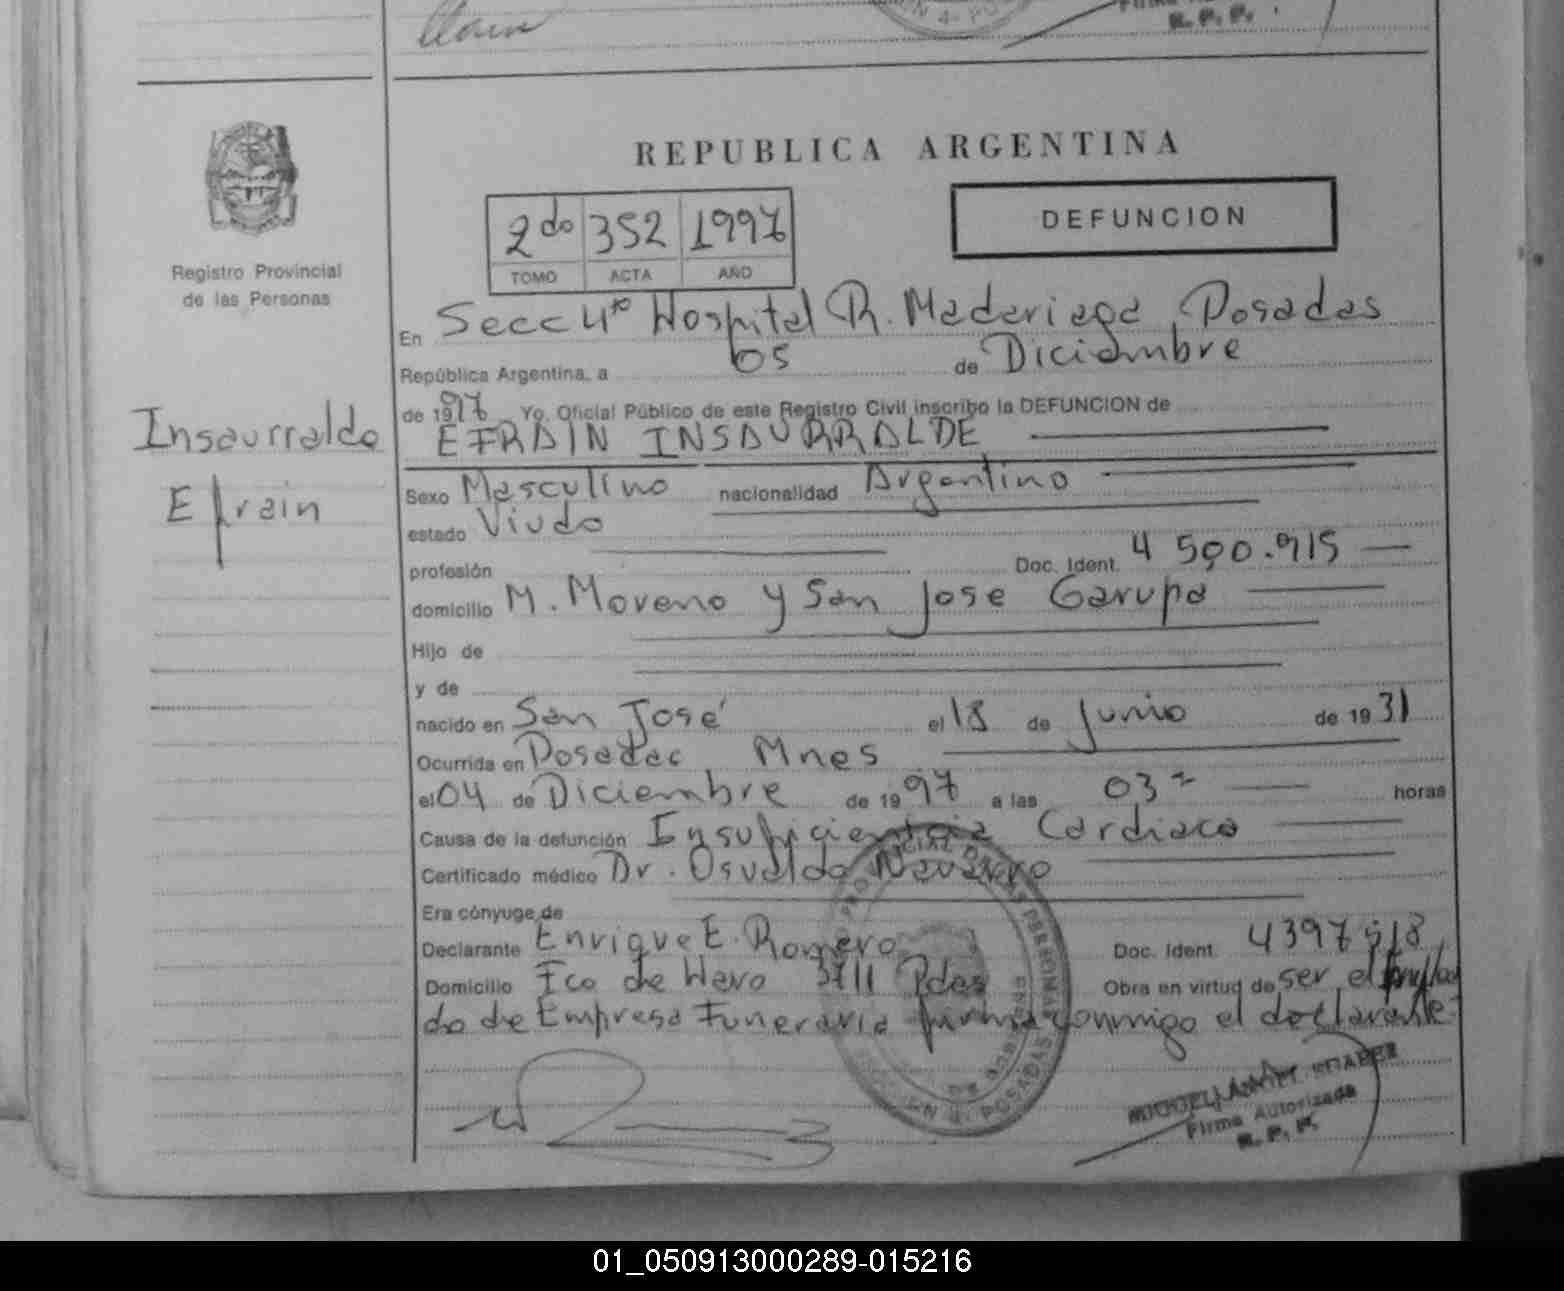 REPUBLICA ARGENTINA
DEFUNCION
2do 352 1997
TOMO ACTA AÑO
Registro Provincial
de las Personas
En Secc 4ta Hospital R. Madariaga Posadas
República Argentina, a 05 de Diciembre
de 1997 Yo, Oficial Público de este Registro Civil inscribo la DEFUNCION de
Insaurralde
Efrain
EFRAIN INSAURRALDE
Sexo Masculino nacionalidad Argentino
estado Viudo
profesión Doc. Ident. 4 500.915
domicilio M. Moreno y San Jose Garupa
Hijo de
y de
nacido en San José el 18 de Junio de 1931
Ocurrida en Posadas Mnes
el 04 de Diciembre de 1997 a las 03 horas
Causa de la defunción Insuficiencia Cardiaca
Certificado médico Dr. Osvaldo Navarro
Era cónyuge de
Declarante Enrique E. Romero Doc. Ident. 4397518
Domicilio Fco de Haro 3711 Pdas Obra en virtud de ser el emplea
do de Empresa Funeraria firma conmigo el declarante
Firma Autorizada
R. P. P.
01_050913000289-015216